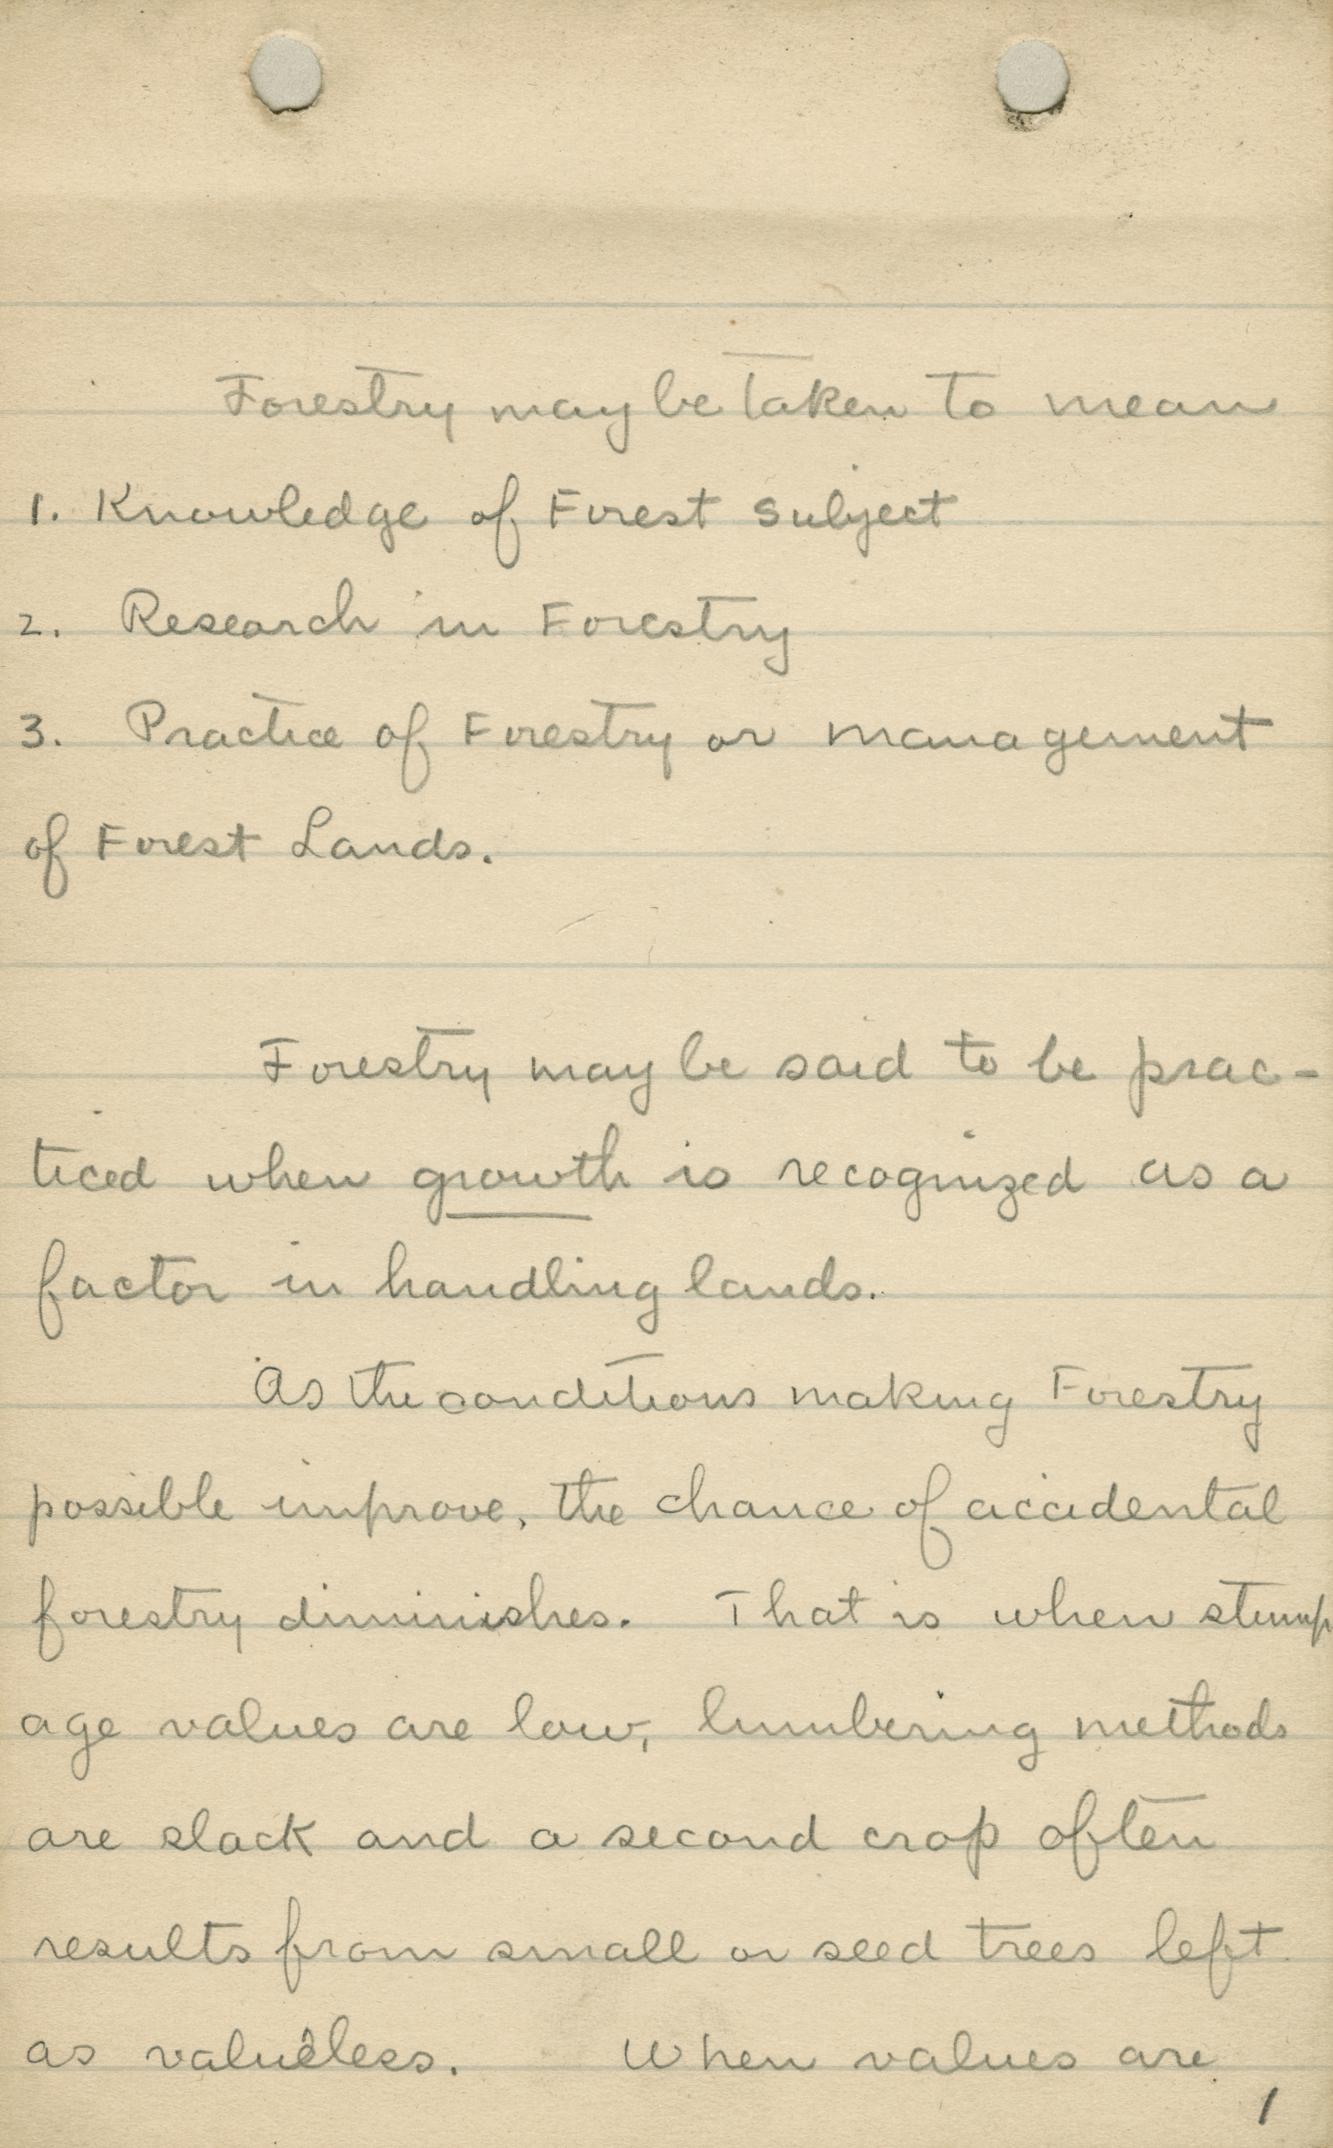 Forestry may be taken to mean
1. Knowledge of Forest Subject
2. Research in Forestry
3. Practice of Forestry or management
of Forest Lands.
Forestry may be said to be prac-
ticed when growth is recognized as a
factor in handling lands.
As the conditions making Forestry
possible improve, the chance of accidental
forestry diminishes. That is when stump
age values are low, lumbering methods
are slack and a second crop often
results from small or seed trees left
as valueless. When values are
1